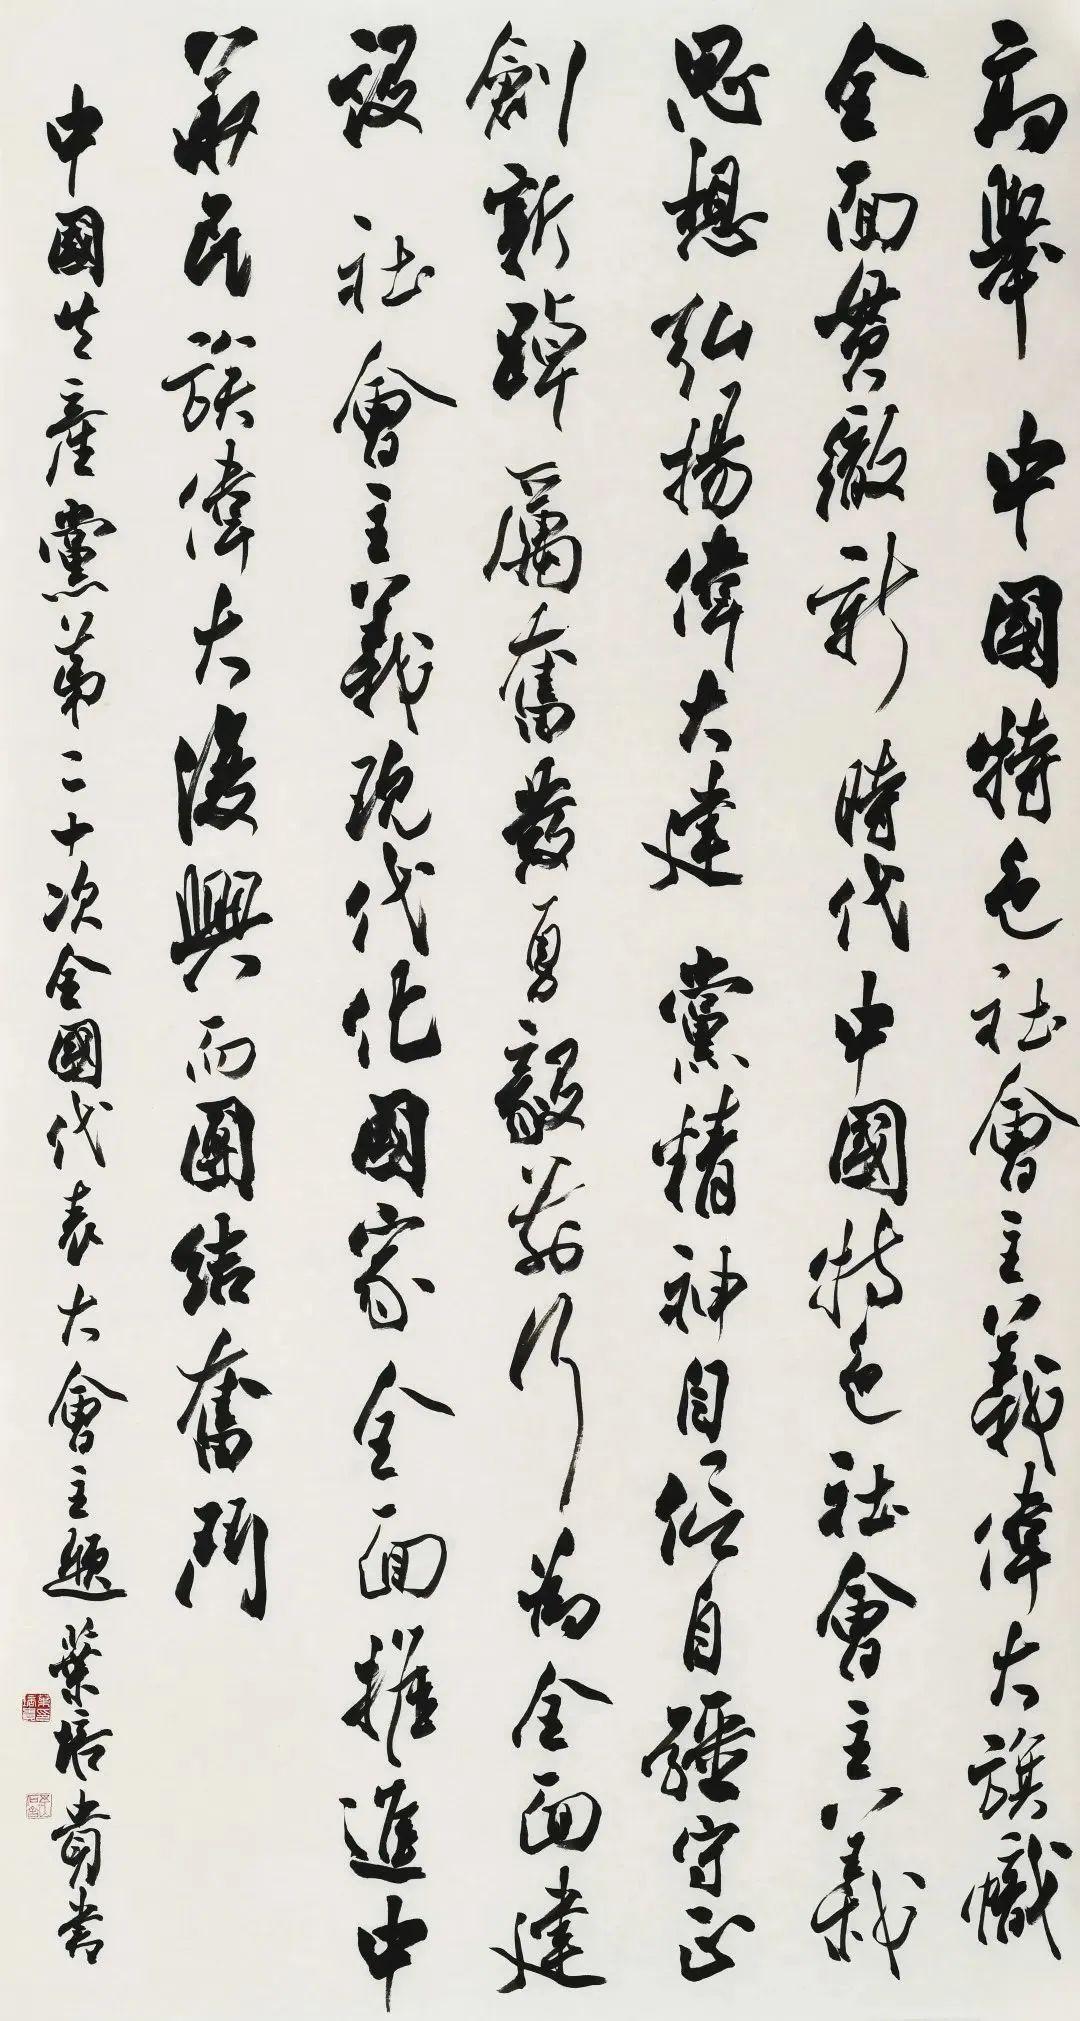 高舉中國特色社會主義偉大旗幟
全面貫徹新時代中國特色社會主義
思想弘揚偉大建黨精神自信自強守正
創新踔厲奮發勇毅前行為全面建
設社會主義現代化國家全面推進中
華民族偉大復興而團結奮鬥
中國共產黨第二十次全國代表大會主題葉培貴書